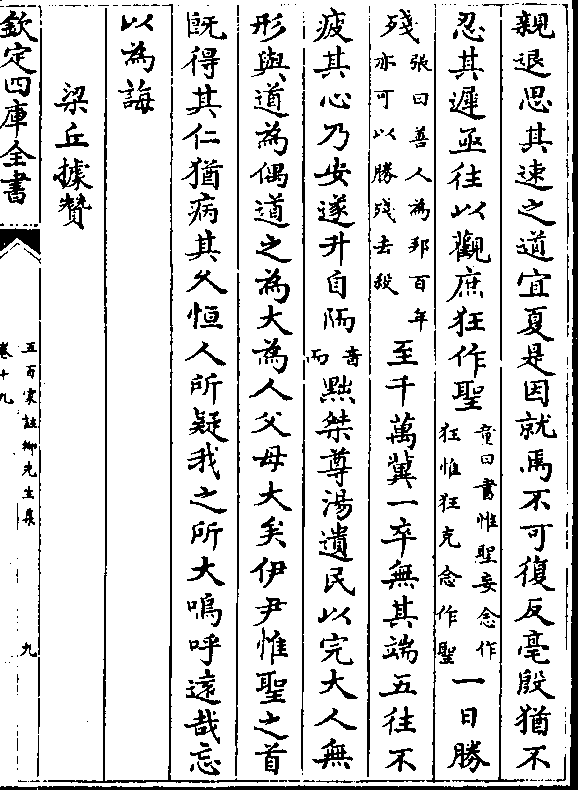 親退思其速之道宜夏是因就焉不可復反亳殷猶不
忍其遲亟往以觀庶狂作聖童曰書惟聖妄念作狂惟狂克念作聖一日勝
殘張曰善人為邦百年亦可以勝殘去殺至千萬冀一卒無其端五往不
疲其心乃安遂升自陑音而黜桀尊湯遺民以完大人無
形與道為偶道之為大為人父母大矣伊尹惟聖之首
既得其仁猶病其久恒人所疑我之所大嗚呼遠哉忘
以為誨
梁丘據贊
欽定四庫全書
五百家註柳先生集
卷十九
九